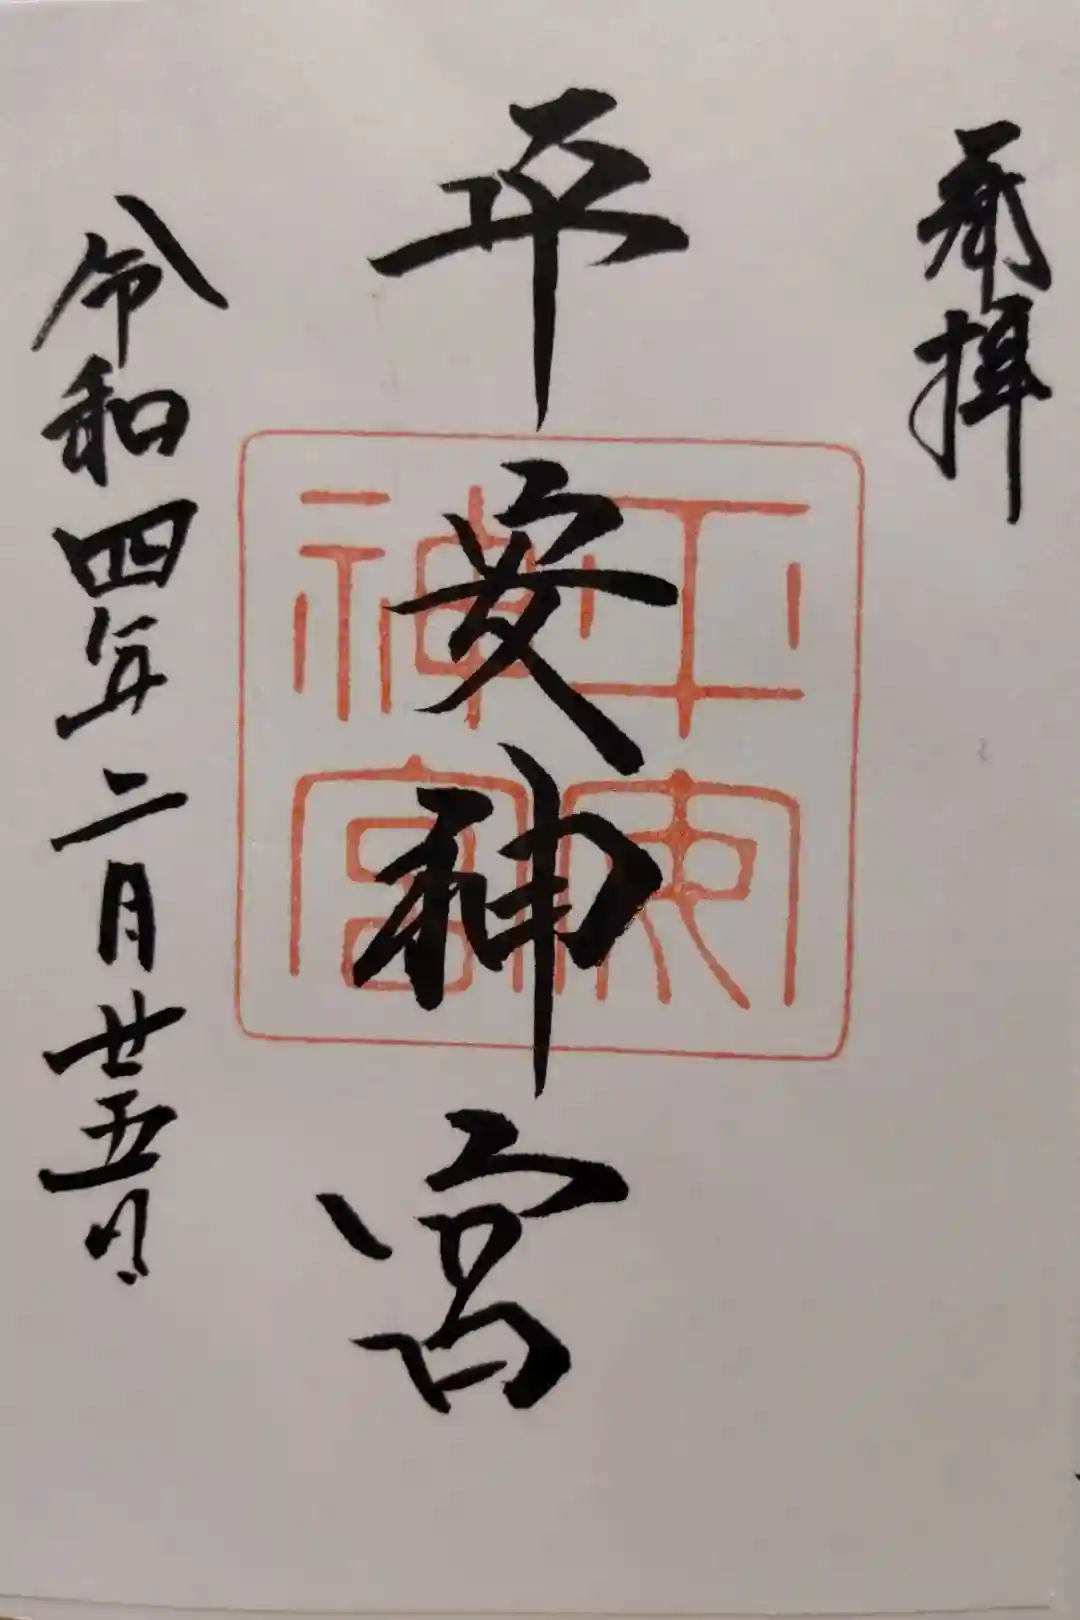 奉拝
平安神宮
平安神宮
令和四年二月廿五日